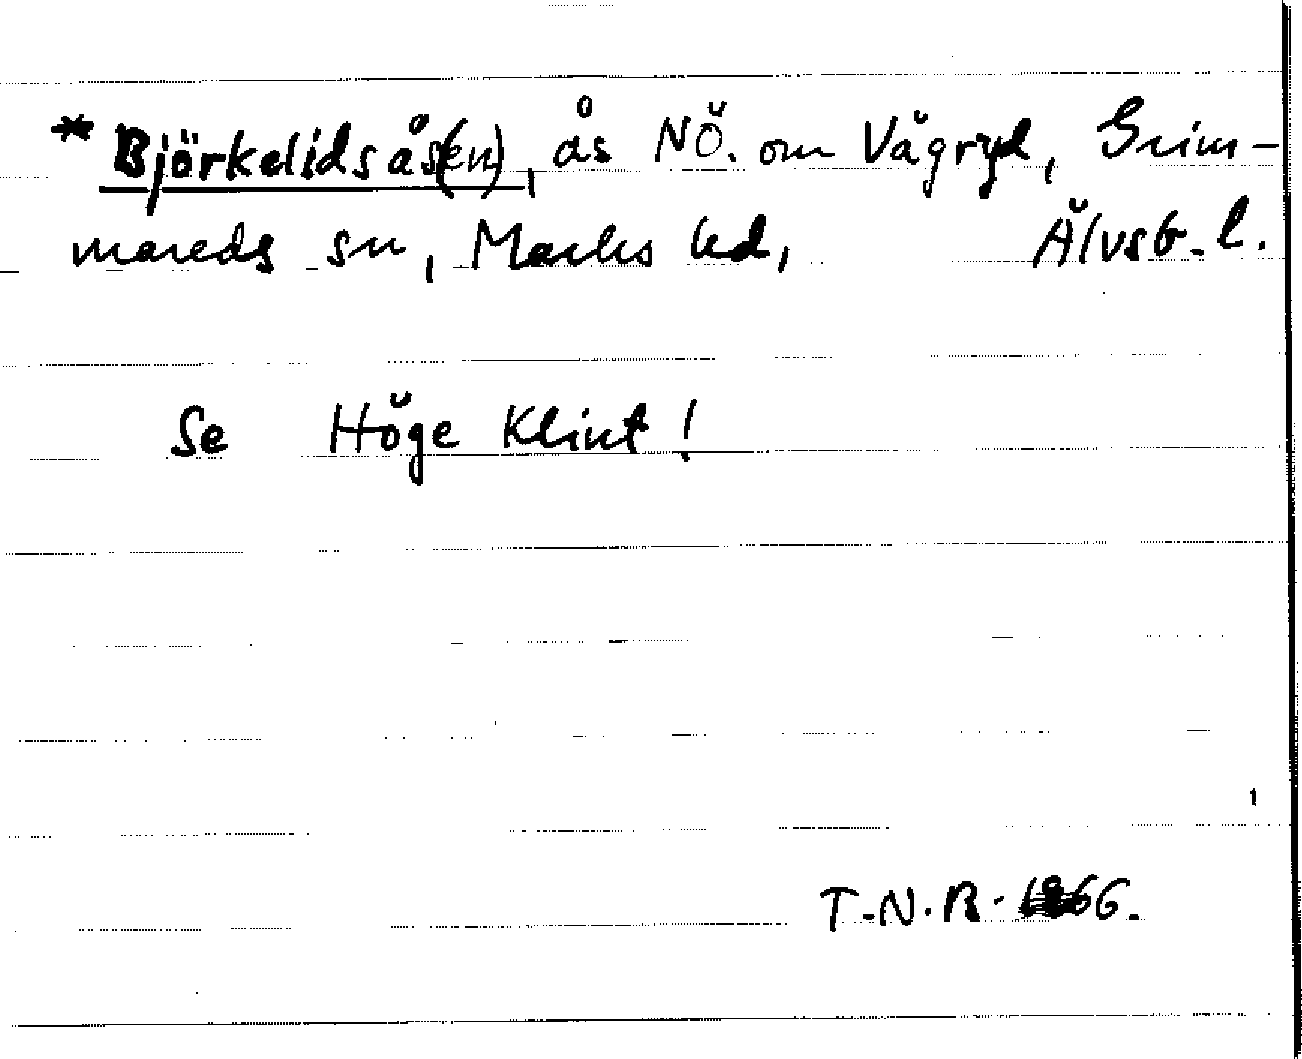 * Björkelidsås(en), ås NÖ. om Vägryd, Grim-
mareds sn, Marks hd, Älvsb. l.
Se Höge Klint!
1
T.N.R. 1966.